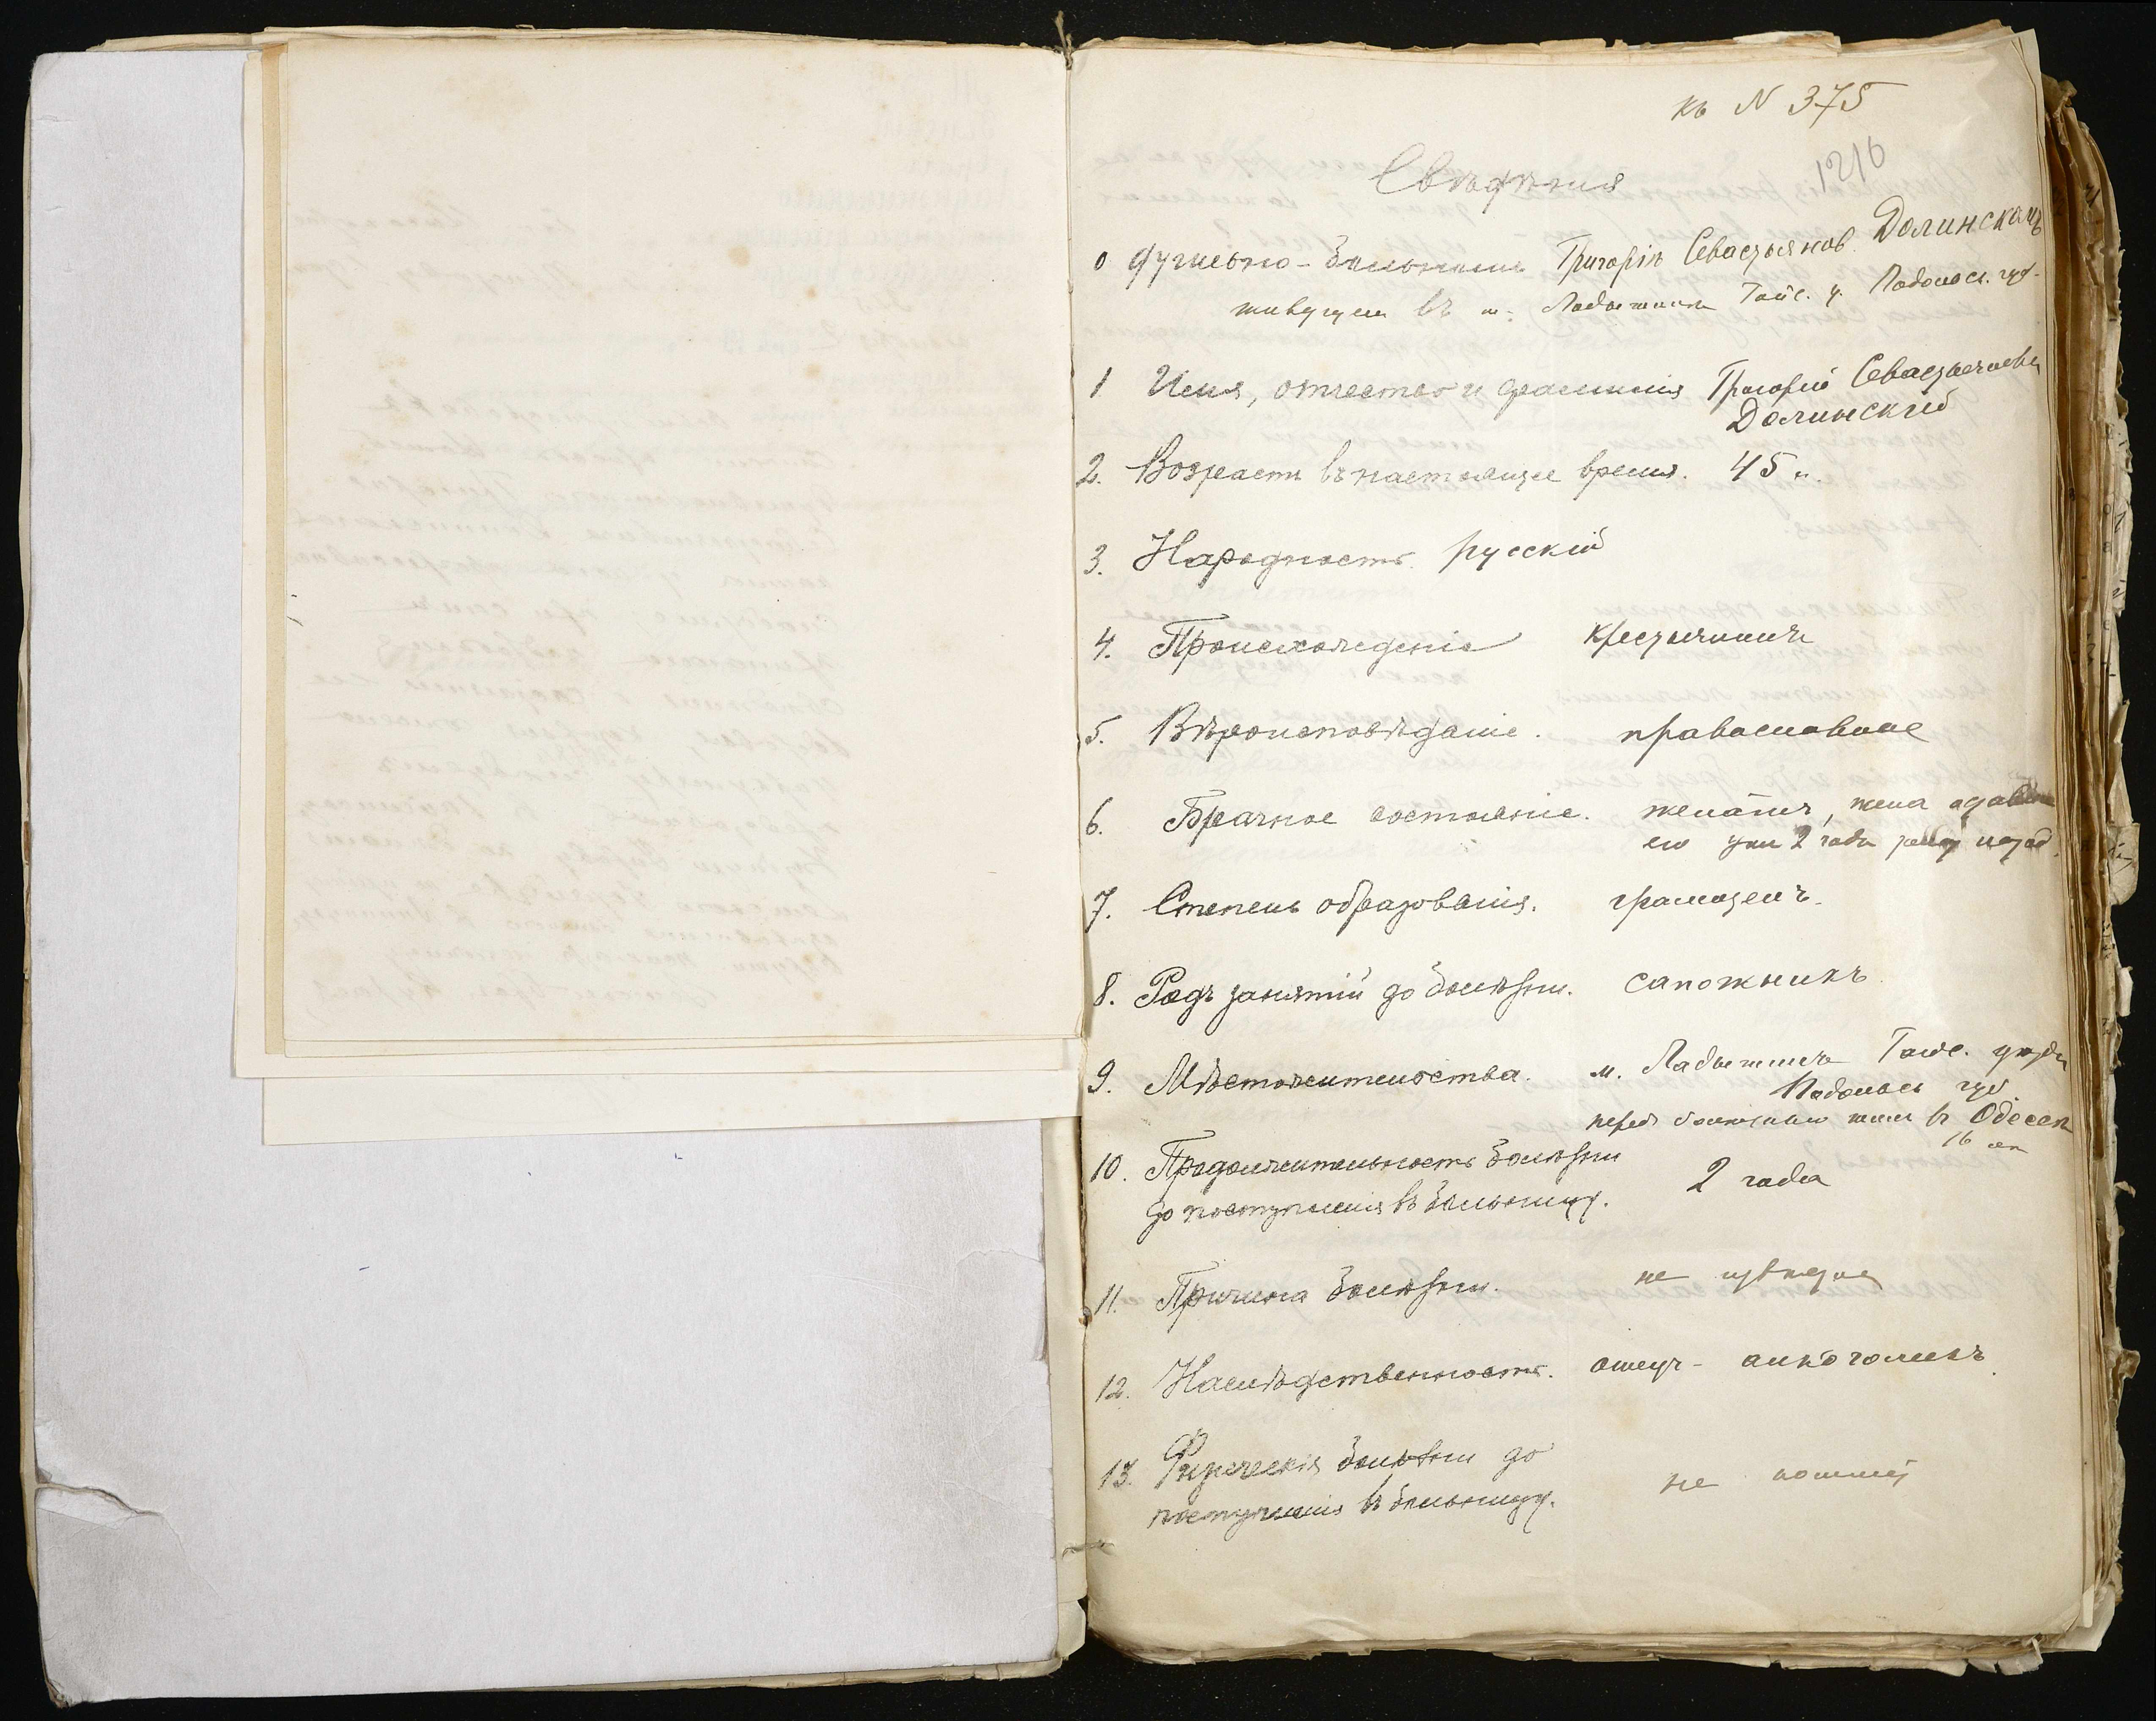 къ N 375
1216
Свѣдѣнія
о душевно-больномъ Григоріѣ Севастьянов. Долинскомъ
живущем въ м. Ладыжинѣ Гайс. у. Подольск. губ.
1 Имя, отчество и фамилія Григорій Севастьяновъ
Долинскій
2. Возрастъ въ настоящее время. 45 л.
3. Народность русскій
4. Происхожденіе крестьянинъ
5. Вѣроисповѣданіе. православное
6. Брачное состояніе. женатъ, жена
его 2 года назад.
7. Степень образованія. грамотенъ.
8. Родъ занятій до болѣзни. сапожникъ.
9. Мѣстожительства. м. Ладыжинъ Гайс. уѣзда
Подольск губ.
передъ болѣзнью жилъ въ Одессѣ
16 лѣт
10. Продолжительность болѣзни
до поступленія въ больницу. 2 года
11. Причина болѣзни. не извѣстна
12. Наслѣдственность. отецъ - алкоголикъ.
13. Физическія болѣзни до
поступленія въ больницу. не